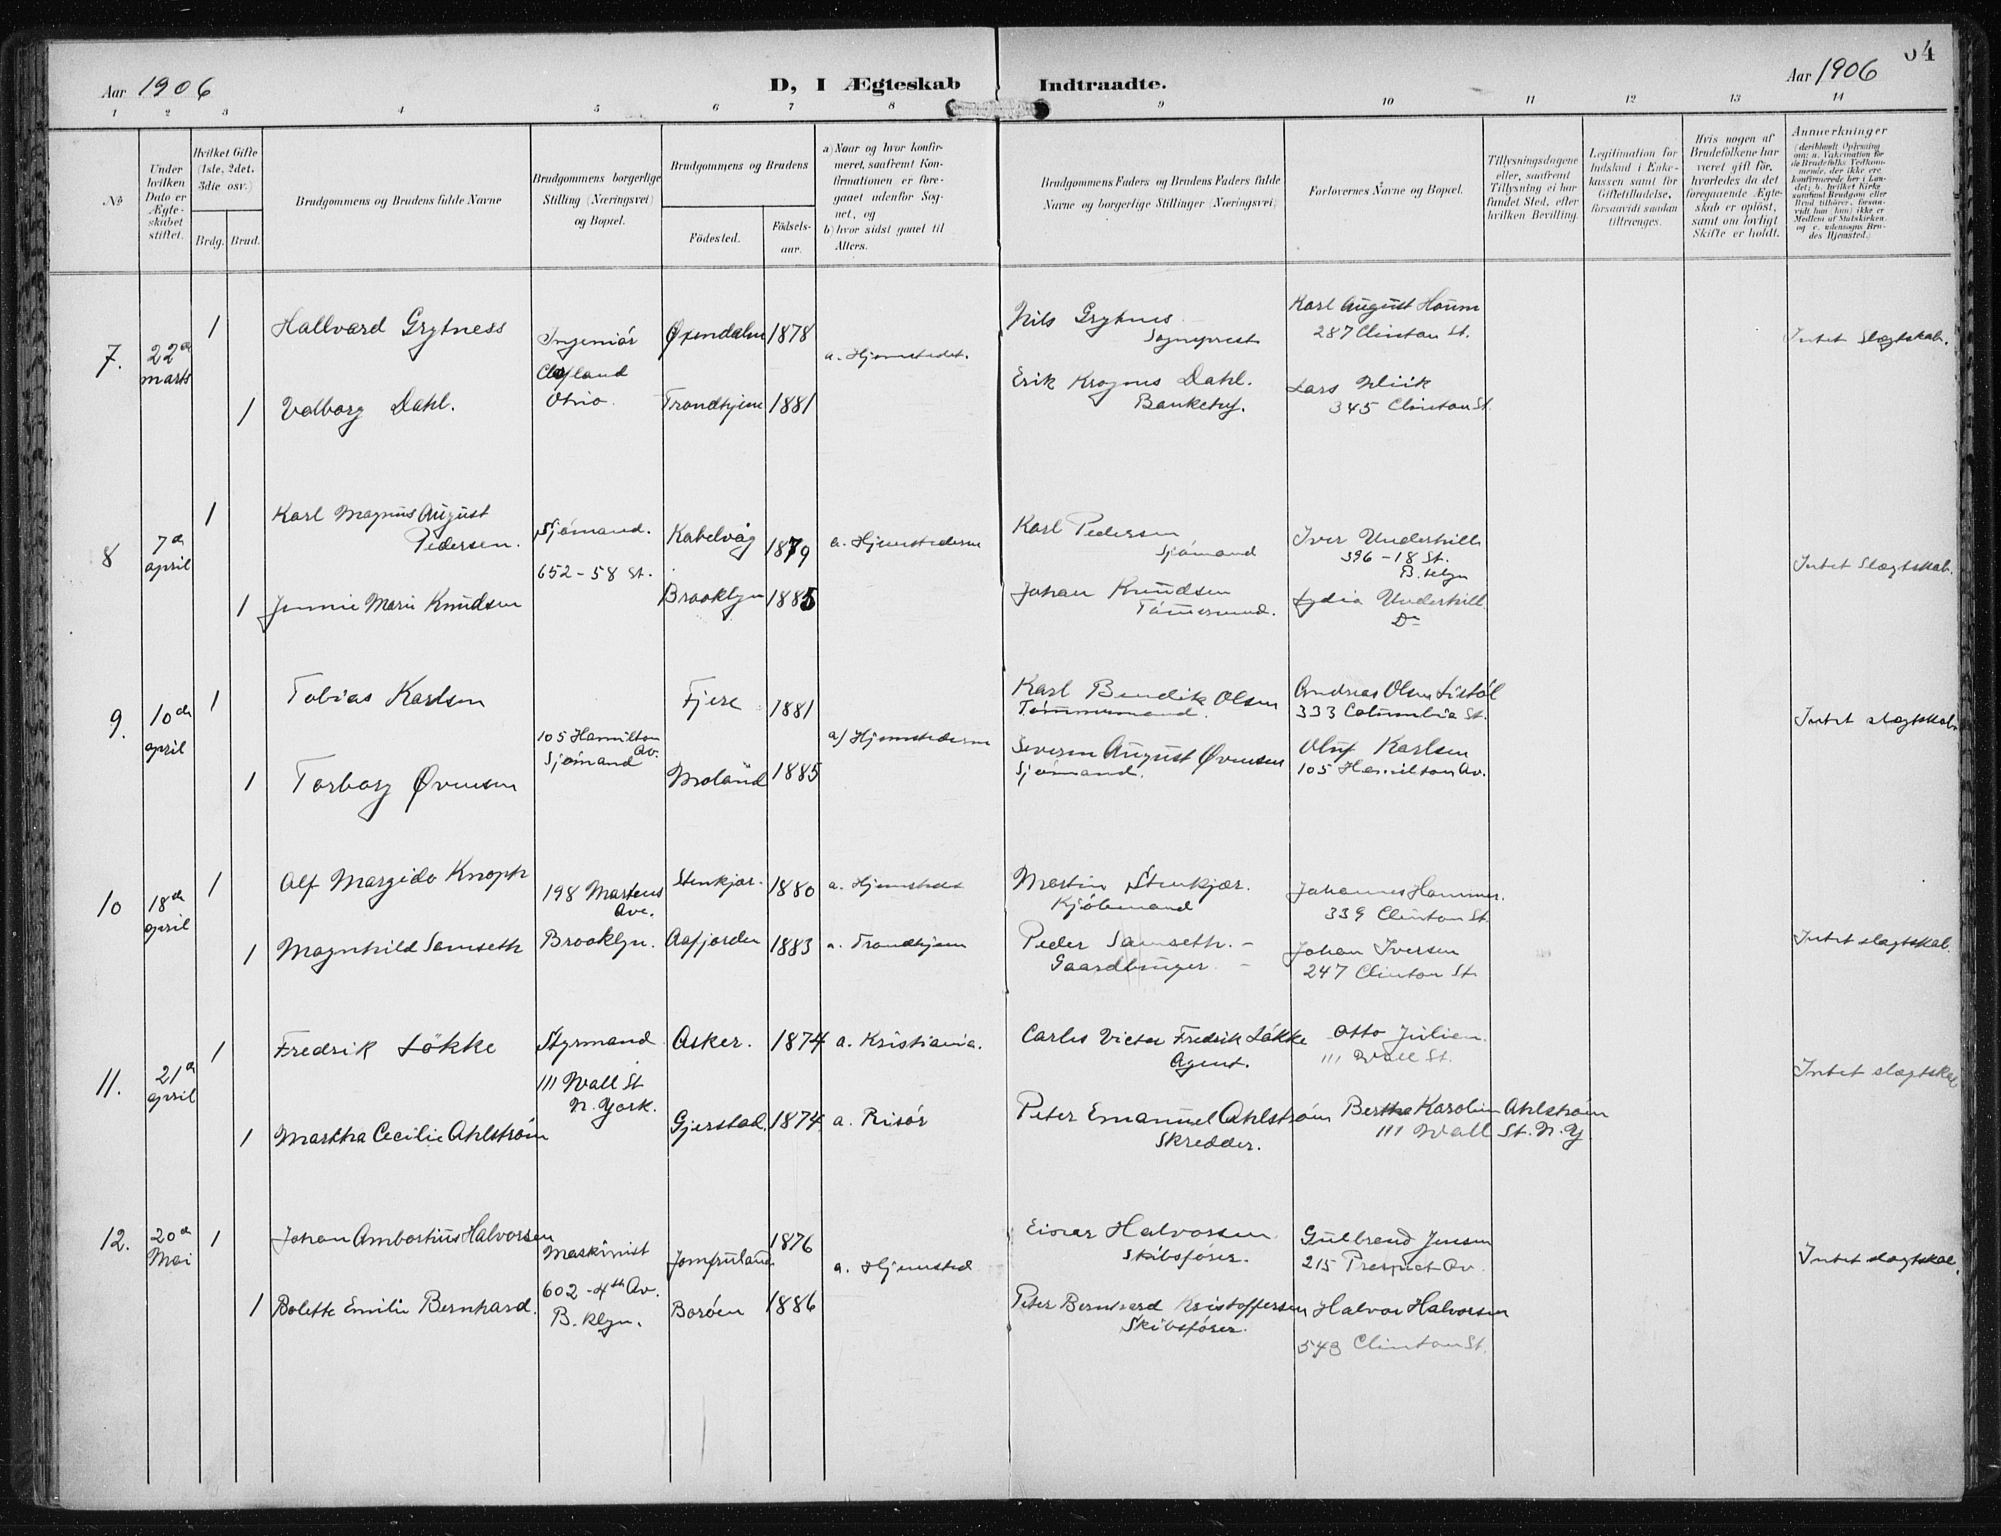 Aar 1906
D, I Ægteskab Indtraadte.
Aar 1906
64
1 2 3 4 5 6 7 8 9 10 11 12 13 14
No
Under hvilken Dato er Ægteskabet stiftet.
Hvilket Gifte (1ste, 2det, 3die osv.)
Brdg. Brud.
Brudgommens og Brudens fulde Navne
Brudgommens borgerlige Stilling (Næringsvei) og Bopæl.
Brudgommens og Brudens
Fødested.
Fødselsaar.
a) Naar og hvor konfirmeret, saafremt Konfirmationen er foregaaet udenfor Sognet, og
b) hvor sidst gaaet til Alters.
Brudgommens Faders og Brudens Faders fulde Navne og borgerlige Stillinger (Næringsvei)
Forlovernes Navne og Bopæl.
Tillysningsdagene eller, saafremt Tillysning ei har fundet Sted, efter hvilken Bevilling.
Legitimation for Indskud i Enkekassen samt for Giftetilladelse, forsaavidt saadan tiltrænges.
Hvis nogen af Brudefolkene har været gift før, hvorledes da det foregaaende Ægteskab er opløst, samt om lovligt Skifte er holdt.
Anmerkninger
(deriblandt Oplysning om: a. Vakcination for de Brudefolks Vedkommende, der ikke ere konfirmerede her i Landet; b. hvilket Kirkesamfund Brudgom eller Brud tilhører, forsaavidt han (hun) ikke er Medlem af Statskirken, og c. udensogns Brudes Hjemsted.)
7. 22de marts
1 Hallvard Grytness
Ingeniör
Ohio.
Øxendalen 1878
a. Hjemstedet.
Nils Grytnes
Sogneprest
Karl August Houm
287 Clinton St.
Intet Slægtskab.
1 Valborg Dahl.
Trondhjem 1881
Erik Krognes Dahl.
345 Clinton St.
8 7de april
1 Karl Magnus August
Pedersen.
Sjömand.
652-58 St.
Kabelvåg 1879
a. Hjemstederne
Karl Pedersen
Sjömand
Iver Underhill
396-18 St.
B.klyn
Intet Slægtskab.
1 Jennie Marie Knudsen
Brooklyn 1885
Johan Knudsen
Tömermand.
Lydia Underhill.
Do
9. 10de april
1 Tobias Karlsen
105 Hamilton Av.
Sjömand
Fjere 1881
a) Hjemstederne
Karl Bendik Olsen
Tömmermand.
Andreas Olsen Listöl
333 Columbia St.
Intet slægtskab
1 Torborg Øvensen
Moland 1885
Severin August Øvensen
Sjömand.
Oluf Karlsen
105 Hamilton Av.
10 18de april
1 Alf Margido Knoph
198 Martens Ave.
Brooklyn.
Stenkjær. 1880
a. Hjemstedet
Martin Stenkjær.
Kjöbmand
Johannes Hammer.
339 Clinton St.
Intet slægtskab.
1 Magnhild Samseth
Aafjorden 1883
a. Trondhjem
Peder Samseth. -
Gaardbruger. -
Johan Iversen
247 Clinton St.
11. 21de april
1 Fredrik Lökke
Styrmand
111 Wall St
N. York.
Asker. 1874
a. Kristiania.
Carles Victor Fredrik Lökke
Agent.
Otto Julien
111 Wall St.
Intet slægtskab
1 Martha Cecilie Ahlström
Gjerstad. 1874
a. Risör
Peter Emanuel Ahlström
Skredder.
Bertha Karolin Ahlström
111 Wall St. N.Y.
12. 20de Mai
1 Johan Ambortius Halvorsen
Maskinist
602-4th Av.
B.klyn.
Jomfruland 1876
a. Hjemsted
Einar Halvorsen
Skibsförer.
Gulbrand Jensen
215 Prospect Av.
Intet slægtskab.
1 Bolette Emilie Bernhard.
Boröen 1886
Peter Bernhard Kristoffersen
Skibsförer.
Halvor Halvorsen
543 Clinton St.